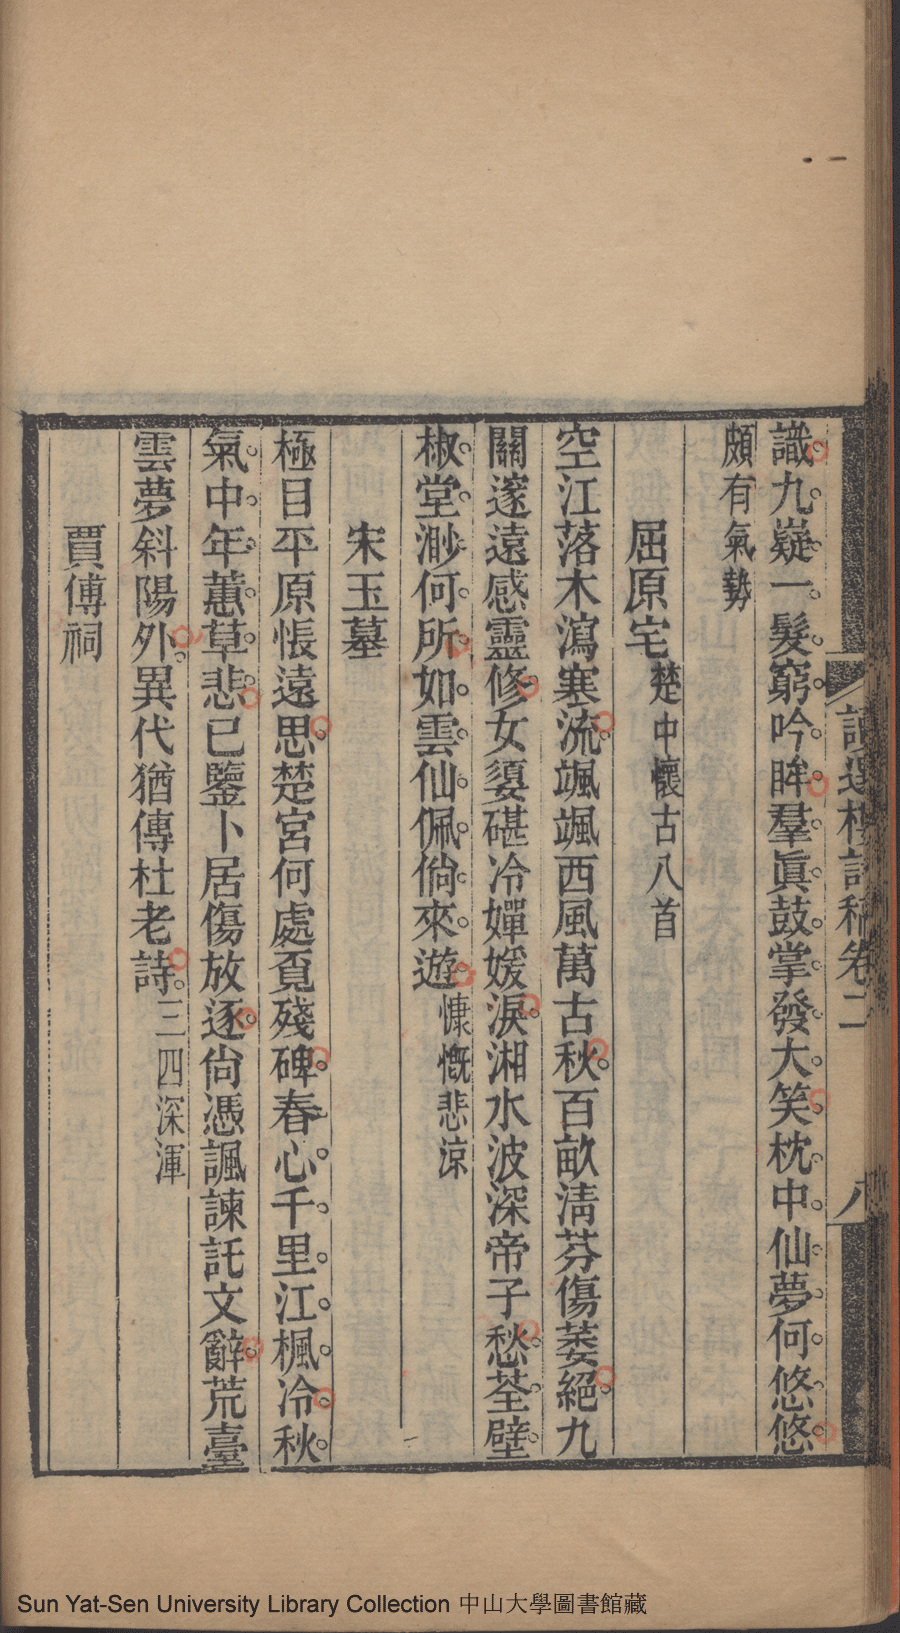 讀選樓詩稿卷二
八
識九嶷一髮窮吟眸羣眞鼓掌發大笑枕中仙夢何悠悠
頗有氣勢
屈原宅楚中懷古八首
空江落木瀉寒流颯颯西風萬古秋百畝清芬傷萎絕九
關邃遠感靈修女嬃碪冷嬋媛淚湘水波深帝子愁荃壁
椒堂渺何所如雲仙佩倘來遊慷慨悲涼
宋玉墓
極目平原悵遠思楚宮何處覓殘碑春心千里江楓冷秋
氣中年蕙草悲已鑒卜居傷放逐尙憑諷諫託文辭荒臺
雲夢斜陽外異代猶傳杜老詩三四深渾
賈傅祠
Sun Yat-Sen University Library Collection 中山大學圖書館藏